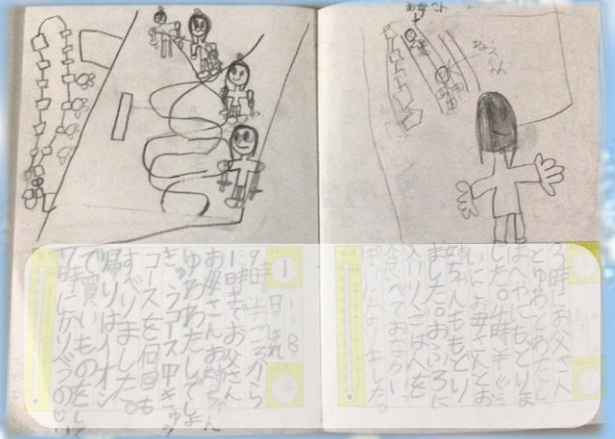 お母さん
ねえさん
1日
はれ
9時半ころから
1時までお父さん
お母さんお姉ちゃん
ゆあわたしでしょ
きゅうコース中きゅう
コースを何回も
すべりました。
帰りはイオン
で買いものをして
7時に
3時にお父さん
とゆあとわたし
はへやにもどりま
した。4時半ぐら
いにお母さんとお
姉ちゃんももどり
ました。おふろに
入りごはんを
食べておなかいっ